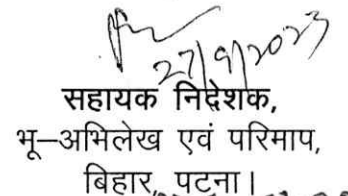 27/9/2023
सहायक निदेशक,
भू–अभिलेख एवं परिमाप,
बिहार, पटना।